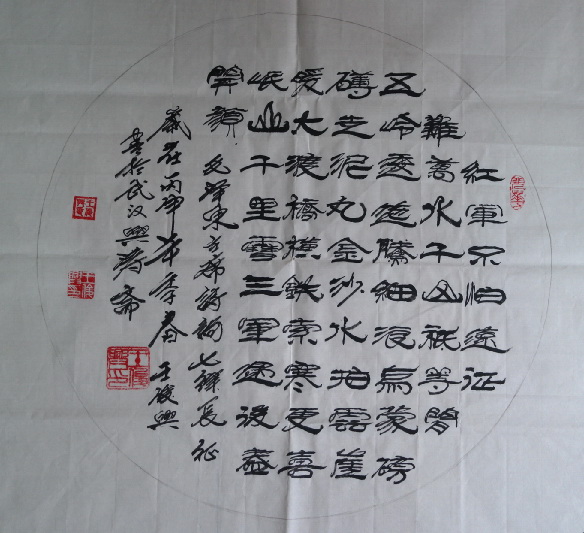 紅軍不怕遠征
難萬水千山祇等閒
五岭逶迤騰細浪烏蒙磅
礴走泥丸金沙水拍雲崖
暖大渡橋橫鉄索寒更喜
岷山千里雪三軍過後盡
開顏 毛澤東主席詩詞七律長征
歲在丙申年季春 王俊興
書於武汉興齋